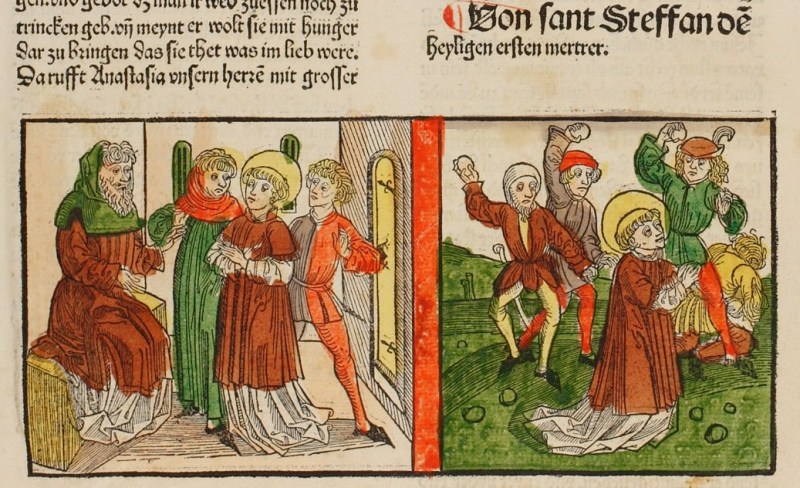 gen. vnd gebot dz man ir wed zuessen noch zu
trincken geb. vn̄ meynt er wolt sie mit hunger
dar zu bringen das sie thet was im lieb were.
Da rufft Anastasia vnsern herrē mit grosser
Von sant Steffan dē
heyligen ersten mertrer.